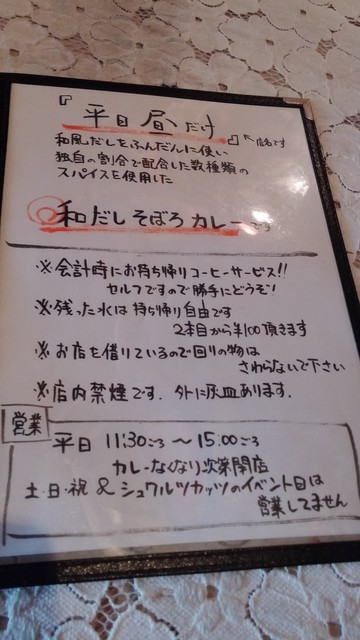 『平日昼だけ』←店名です
和風だしをふんだんに使い
独自の割合で配合した数種類の
スパイスを使用した
和だしそぼろカレーです
※会計時にお持ち帰りコーヒーサービス!!
セルフですので勝手にどうぞ!
※残った水は持ち帰り自由です
2本目から¥100頂きます
※お店を借りているので回りの物は
さわらないで下さい
※店内禁煙です.外に灰皿あります.
営業
平日 11:30ごろ～15:00ごろ
カレーなくなり次第閉店
土・日・祝&シュワルツカッツのイベント日は
営業してません